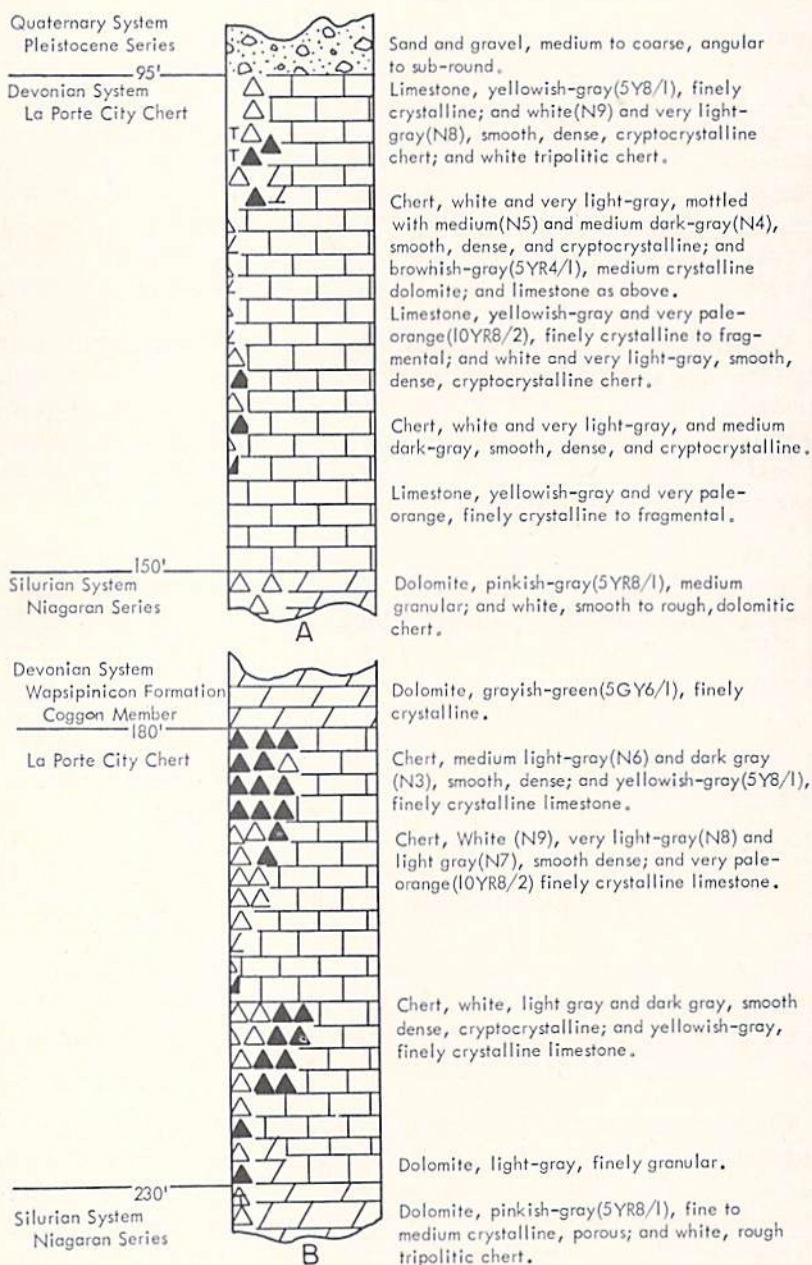 Quaternary System
Pleistocene Series
Sand and gravel, medium to coarse, angular
to sub-round.
95'
Devonian System
La Porte City Chert
Limestone, yellowish-gray(5Y8/1), finely
crystalline; and white(N9) and very light-
gray(N8), smooth, dense, cryptocrystalline
chert; and white tripolitic chert.
T
T
Chert, white and very light-gray, mottled
with medium(N5) and medium dark-gray(N4),
smooth, dense, and cryptocrystalline; and
browhish-gray(5YR4/1), medium crystalline
dolomite; and limestone as above.
Limestone, yellowish-gray and very pale-
orange(10YR8/2), finely crystalline to frag-
mental; and white and very light-gray, smooth,
dense, cryptocrystalline chert.
Chert, white and very light-gray, and medium
dark-gray, smooth, dense, and cryptocrystalline.
Limestone, yellowish-gray and very pale-
orange, finely crystalline to fragmental.
150'
Silurian System
Niagaran Series
Dolomite, pinkish-gray(5YR8/1), medium
granular; and white, smooth to rough, dolomitic
chert.
A
Devonian System
Wapsipinicon Formation
Coggon Member
Dolomite, grayish-green(5GY6/1), finely
crystalline.
180'
La Porte City Chert
Chert, medium light-gray(N6) and dark gray
(N3), smooth, dense; and yellowish-gray(5Y8/1),
finely crystalline limestone.
Chert, White (N9), very light-gray(N8) and
light gray(N7), smooth dense; and very pale-
orange(10YR8/2) finely crystalline limestone.
Chert, white, light gray and dark gray, smooth
dense, cryptocrystalline; and yellowish-gray,
finely crystalline limestone.
Dolomite, light-gray, finely granular.
230'
Silurian System
Niagaran Series
Dolomite, pinkish-gray(5YR8/1), fine to
medium crystalline, porous; and white, rough
tripolitic chert.
B